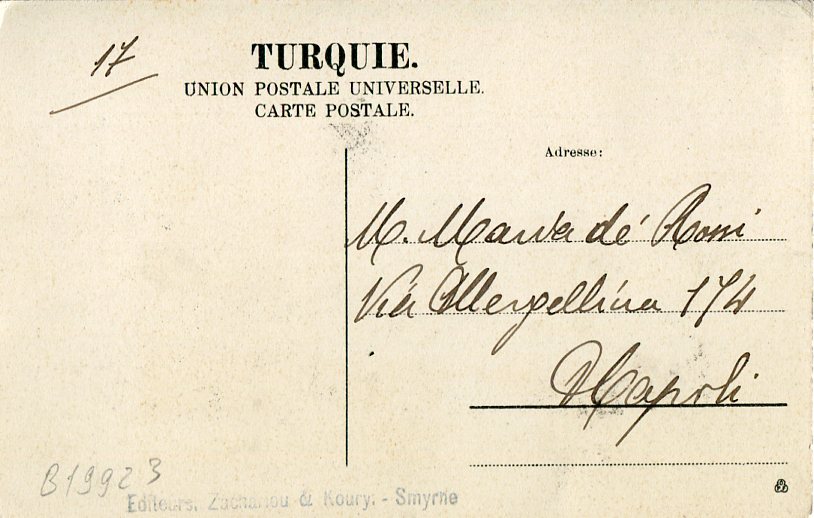 17
TURQUIE.
UNION POSTALE UNIVERSELLE.
CARTE POSTALE.
Adresse:
M. Maria dé Rossi
Via Mergellina 174
Napoli
B19923
Editeurs, Zachariou & Koury. - Smyrne